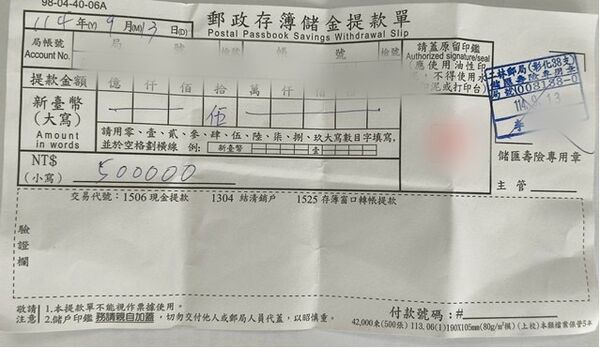 98-04-40-06A
郵政存簿儲金提款單
Postal Passbook Savings Withdrawal Slip
114年(Y)9月(M)13日(D)
局帳號
Account No.
局號
帳號
請蓋原留印鑑
Authorized signature/seal
應使用油性印
不得使用水
或打印台
二林郵局(彰化38支)
114.9.13
提款金額
億仟佰拾萬仟佰拾元
新臺幣
(大寫)
Amount
in words
伍
請用零、壹、貳、參、肆、伍、陸、柒、捌、玖大寫數目字填寫,
並於空格劃橫線 例:新臺幣 壹
NT$
(小寫)
500000
儲匯壽險專用章
主管
交易代號:1506 現金提款 1304 結清銷戶 1525 存簿窗口轉帳提款
驗證欄
敬請注意
1.本提款單不能視作票據使用。
2.儲戶印鑑 務請親自加蓋,切勿交付他人或郵局人員代蓋,以昭慎重。
付款號碼:#
42,000束(500張) 113.06.(1)190X105mm(80g/m²模)(上校)本類檔案保管5年